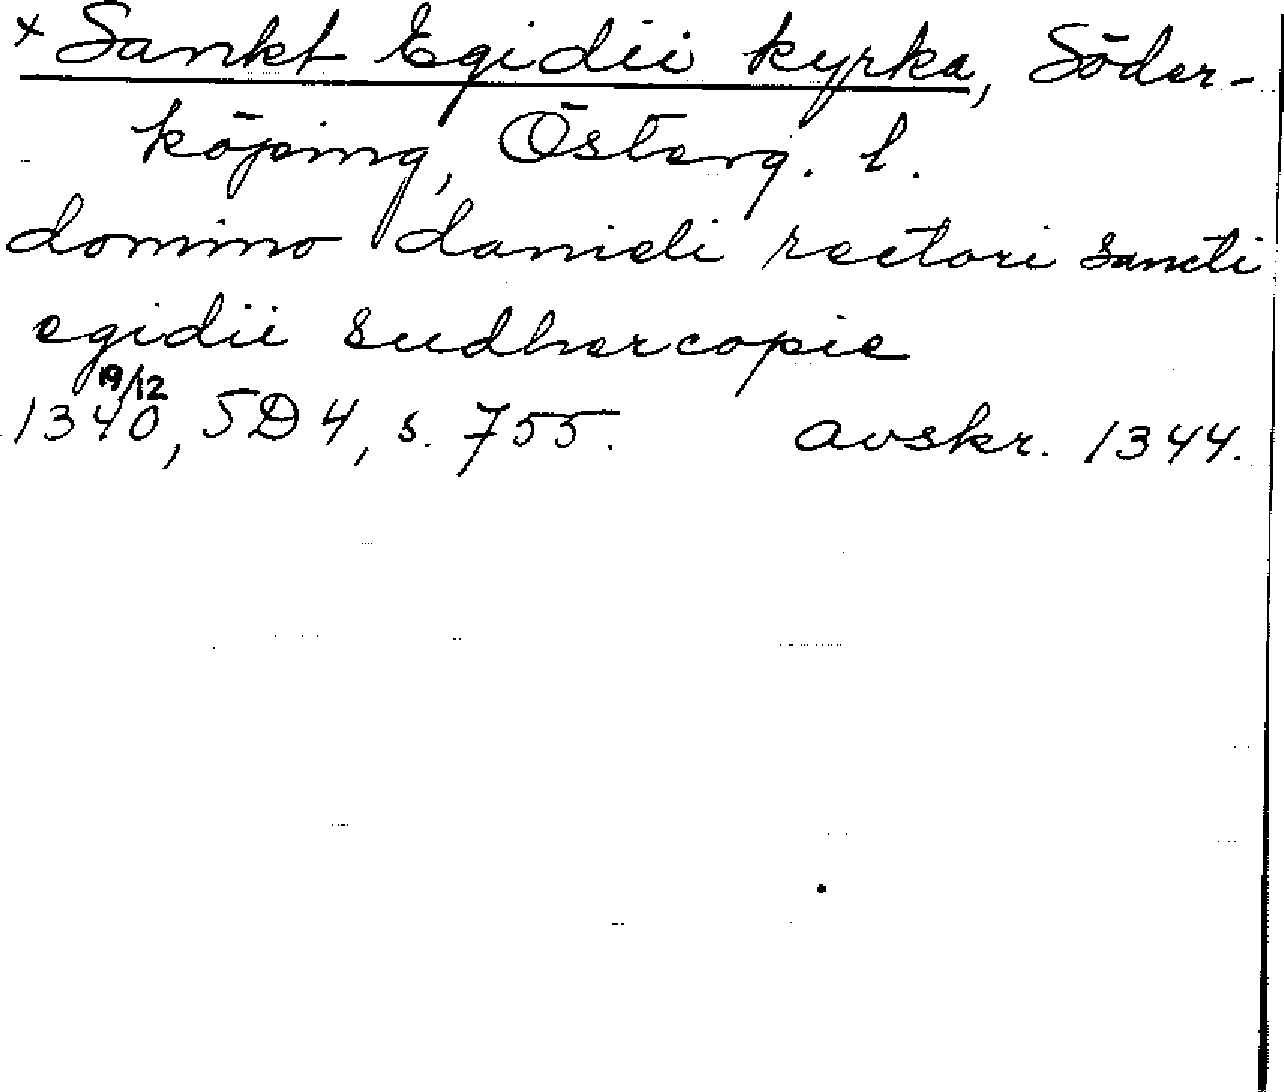 × Sankt Egidii kyrka, Söder-
köping, Österg. l.
domino danieli rectori sancti
egidii sudhercopie
1340 19/12, SD 4, s. 755. avskr. 1344.